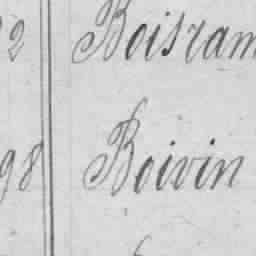 2 Boisram
98 Boivin